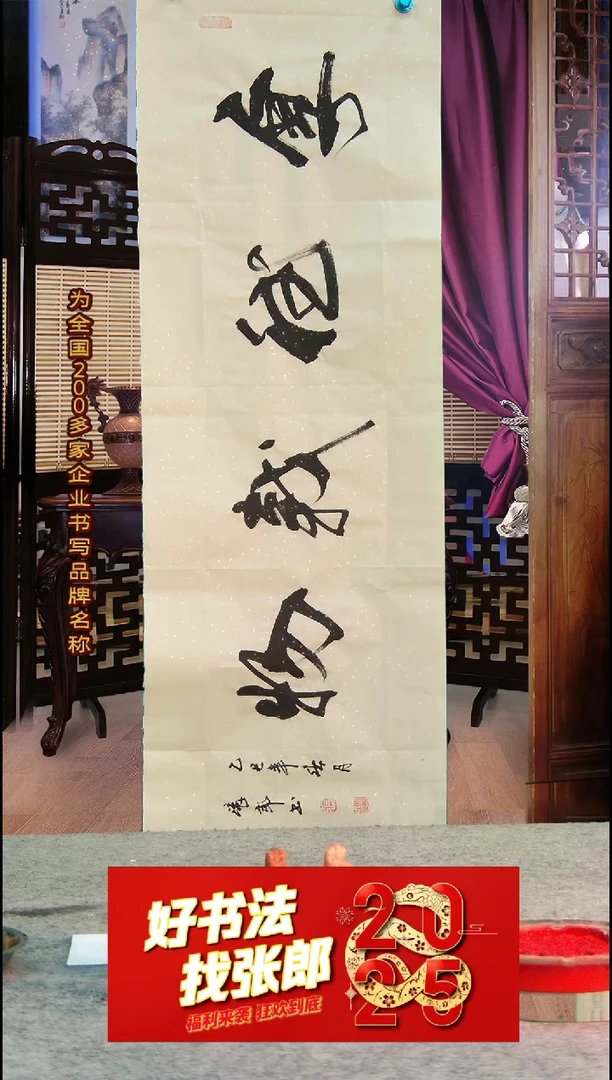 厚德載物
乙巳年
为全国200多家企业书写品牌名称
好书法
找张郎
福利来袭 狂欢到底
2025